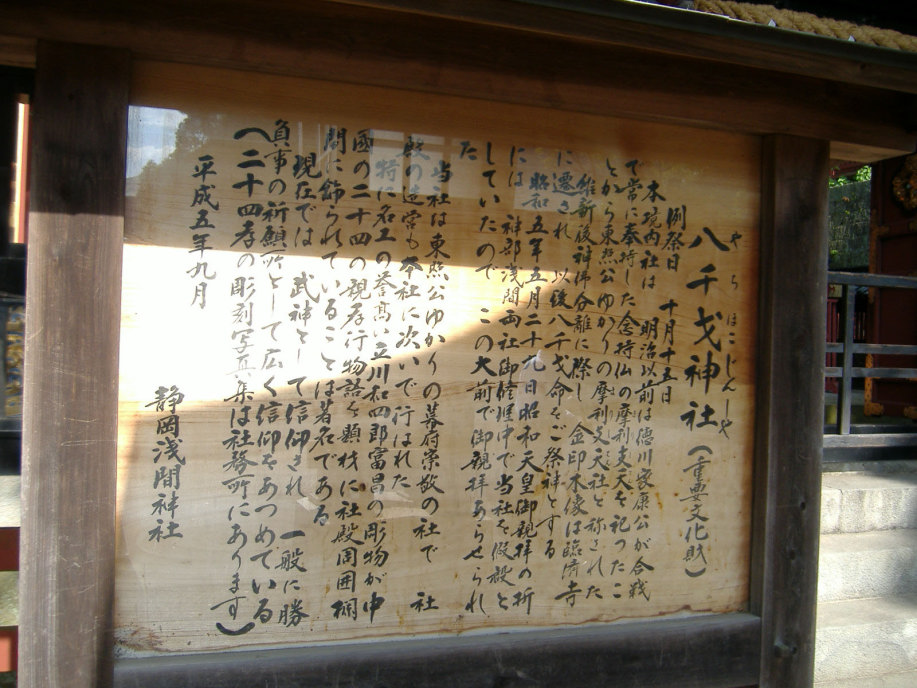 やちほこじんじゃ
八千戈神社(重要文化財)
例祭日 十月十五日
本境内社は 明治以前は徳川家康公が合戦
で常に奉持した念持仏の摩利支天を祀ったこ
とから東照公ゆかりの摩利支天社と称された
維新後神仏分離に際し 金印木像は臨済寺
に遷され 以後八千戈命をご祭神とする
昭和五年五月二十九日昭和天皇御親拝の折
には 神部浅間両社御修理中で当社を仮殿と
していたので この大前で御親拝あらせられ
た
当社は東照公ゆかりの幕府崇敬の社で 社
殿の造営も本社に次いで行はれた
特に名工の誉高い立川和四郎富昌の彫物が中
国の二十四の親孝行物語を題材に社殿周囲欄
間に飾られていることは著名である
現在では 武神として信仰され 一般に勝
負事の祈願所として広く信仰をあつめている
(二十四孝の彫刻写真集は社務所にあります)
平成五年九月
静岡浅間神社